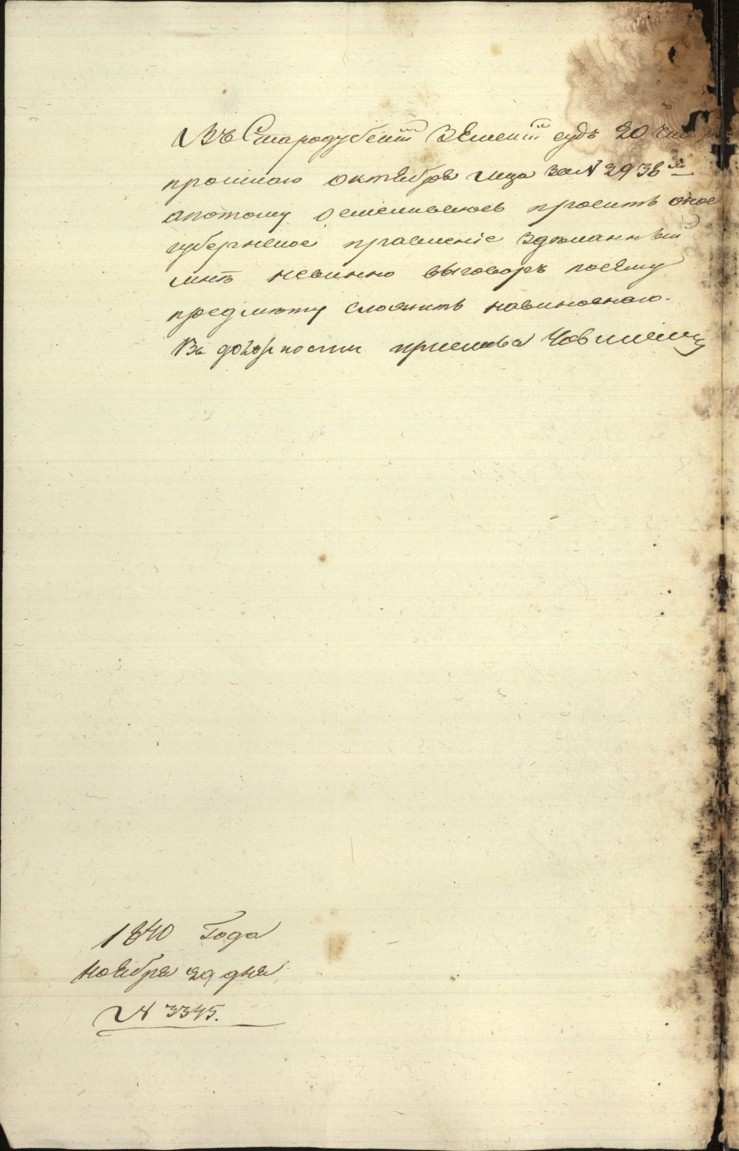 Въ Стародубскій Земскій судъ 20 чис
прошлаго октября м-ца за № 2938 м
апотому осмеливаюсь просить оное
губернское правленіе зделанный
мнѣ невинно выговоръ посему
предмѣту сложить навиновнаго.
1840 Года
ноября 29 дня
№ 3345.